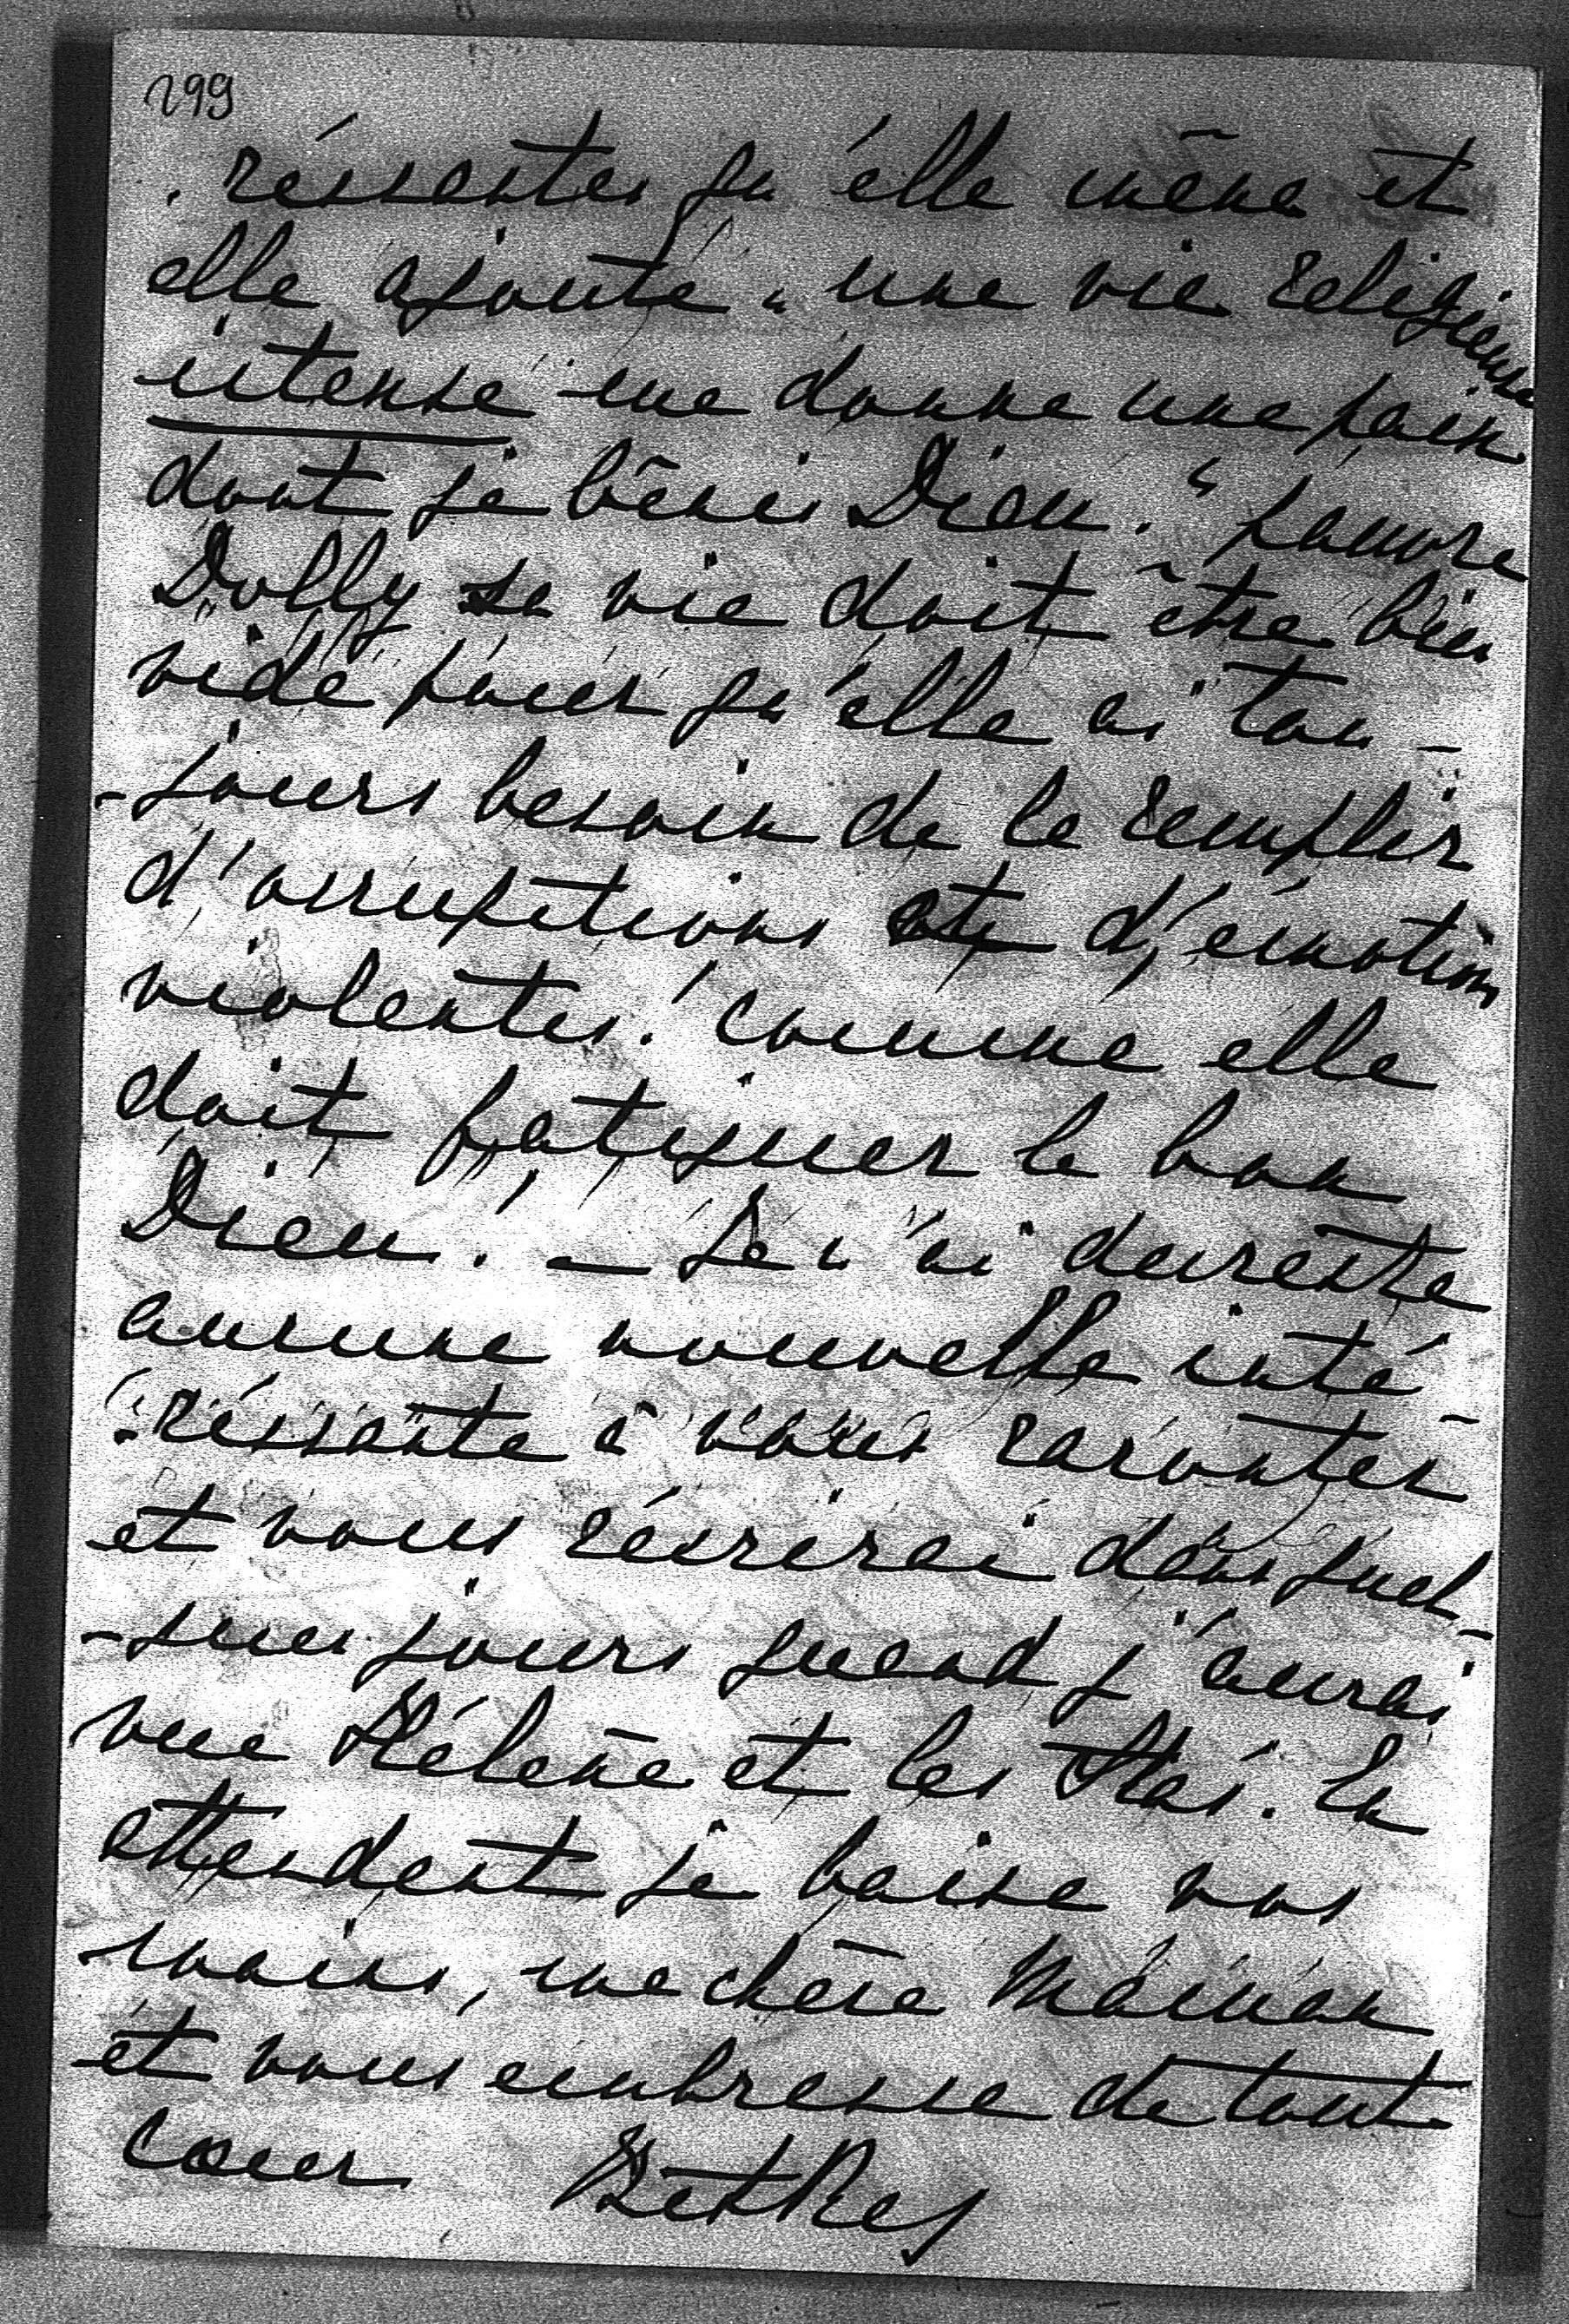 299
-ressantes qu'elle même et
elle ajoute "une vie religieuse
intense me donne une paix
dont je bénis Dieu." pauvre
Dolly sa vie doit être bien
vide pour qu'elle ai tou-
-jours besoin de la remplir
d'occupations et d'émotions
violentes! comme elle
doit fatiguer le bon
Dieu! — Je n'ai dureste
aucune nouvelle inté
-ressante à vous raconter
et vous récrirai dans quel-
-ques jours quand j'aurai
vue Hélène et les En
attendant je baise vos
mains, ma chère Maman
et vous embrasse de tout
cœur